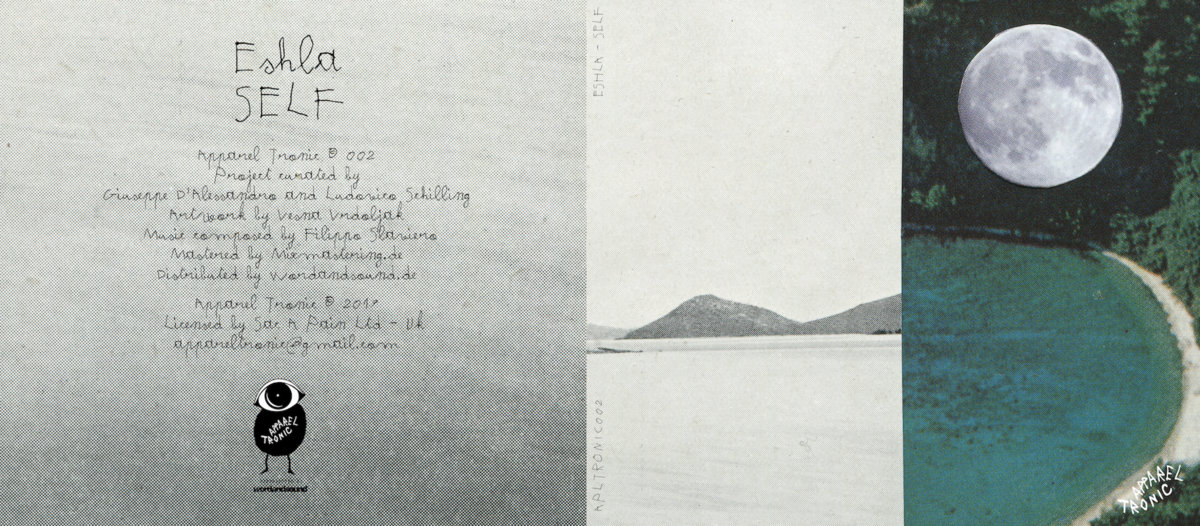 Eshla
SELF
Apparel Tronic ℗ 002
Project curated by
Giuseppe D'Alessandro and Ludovico Schilling
Artwork by Vesna Vrdoljak
Music composed by Filippo Slaviero
Mastered by Mixmastering.de
Distributed by Wordandsound.de
Apparel Tronic ℗ 2017
Licensed by Sac A Pain Ltd - Uk
appareltronic@gmail.com
APPAREL
TRONIC
wordandsound
ESHLA - SELF
APLTRONIC002
APPAREL
TRONIC